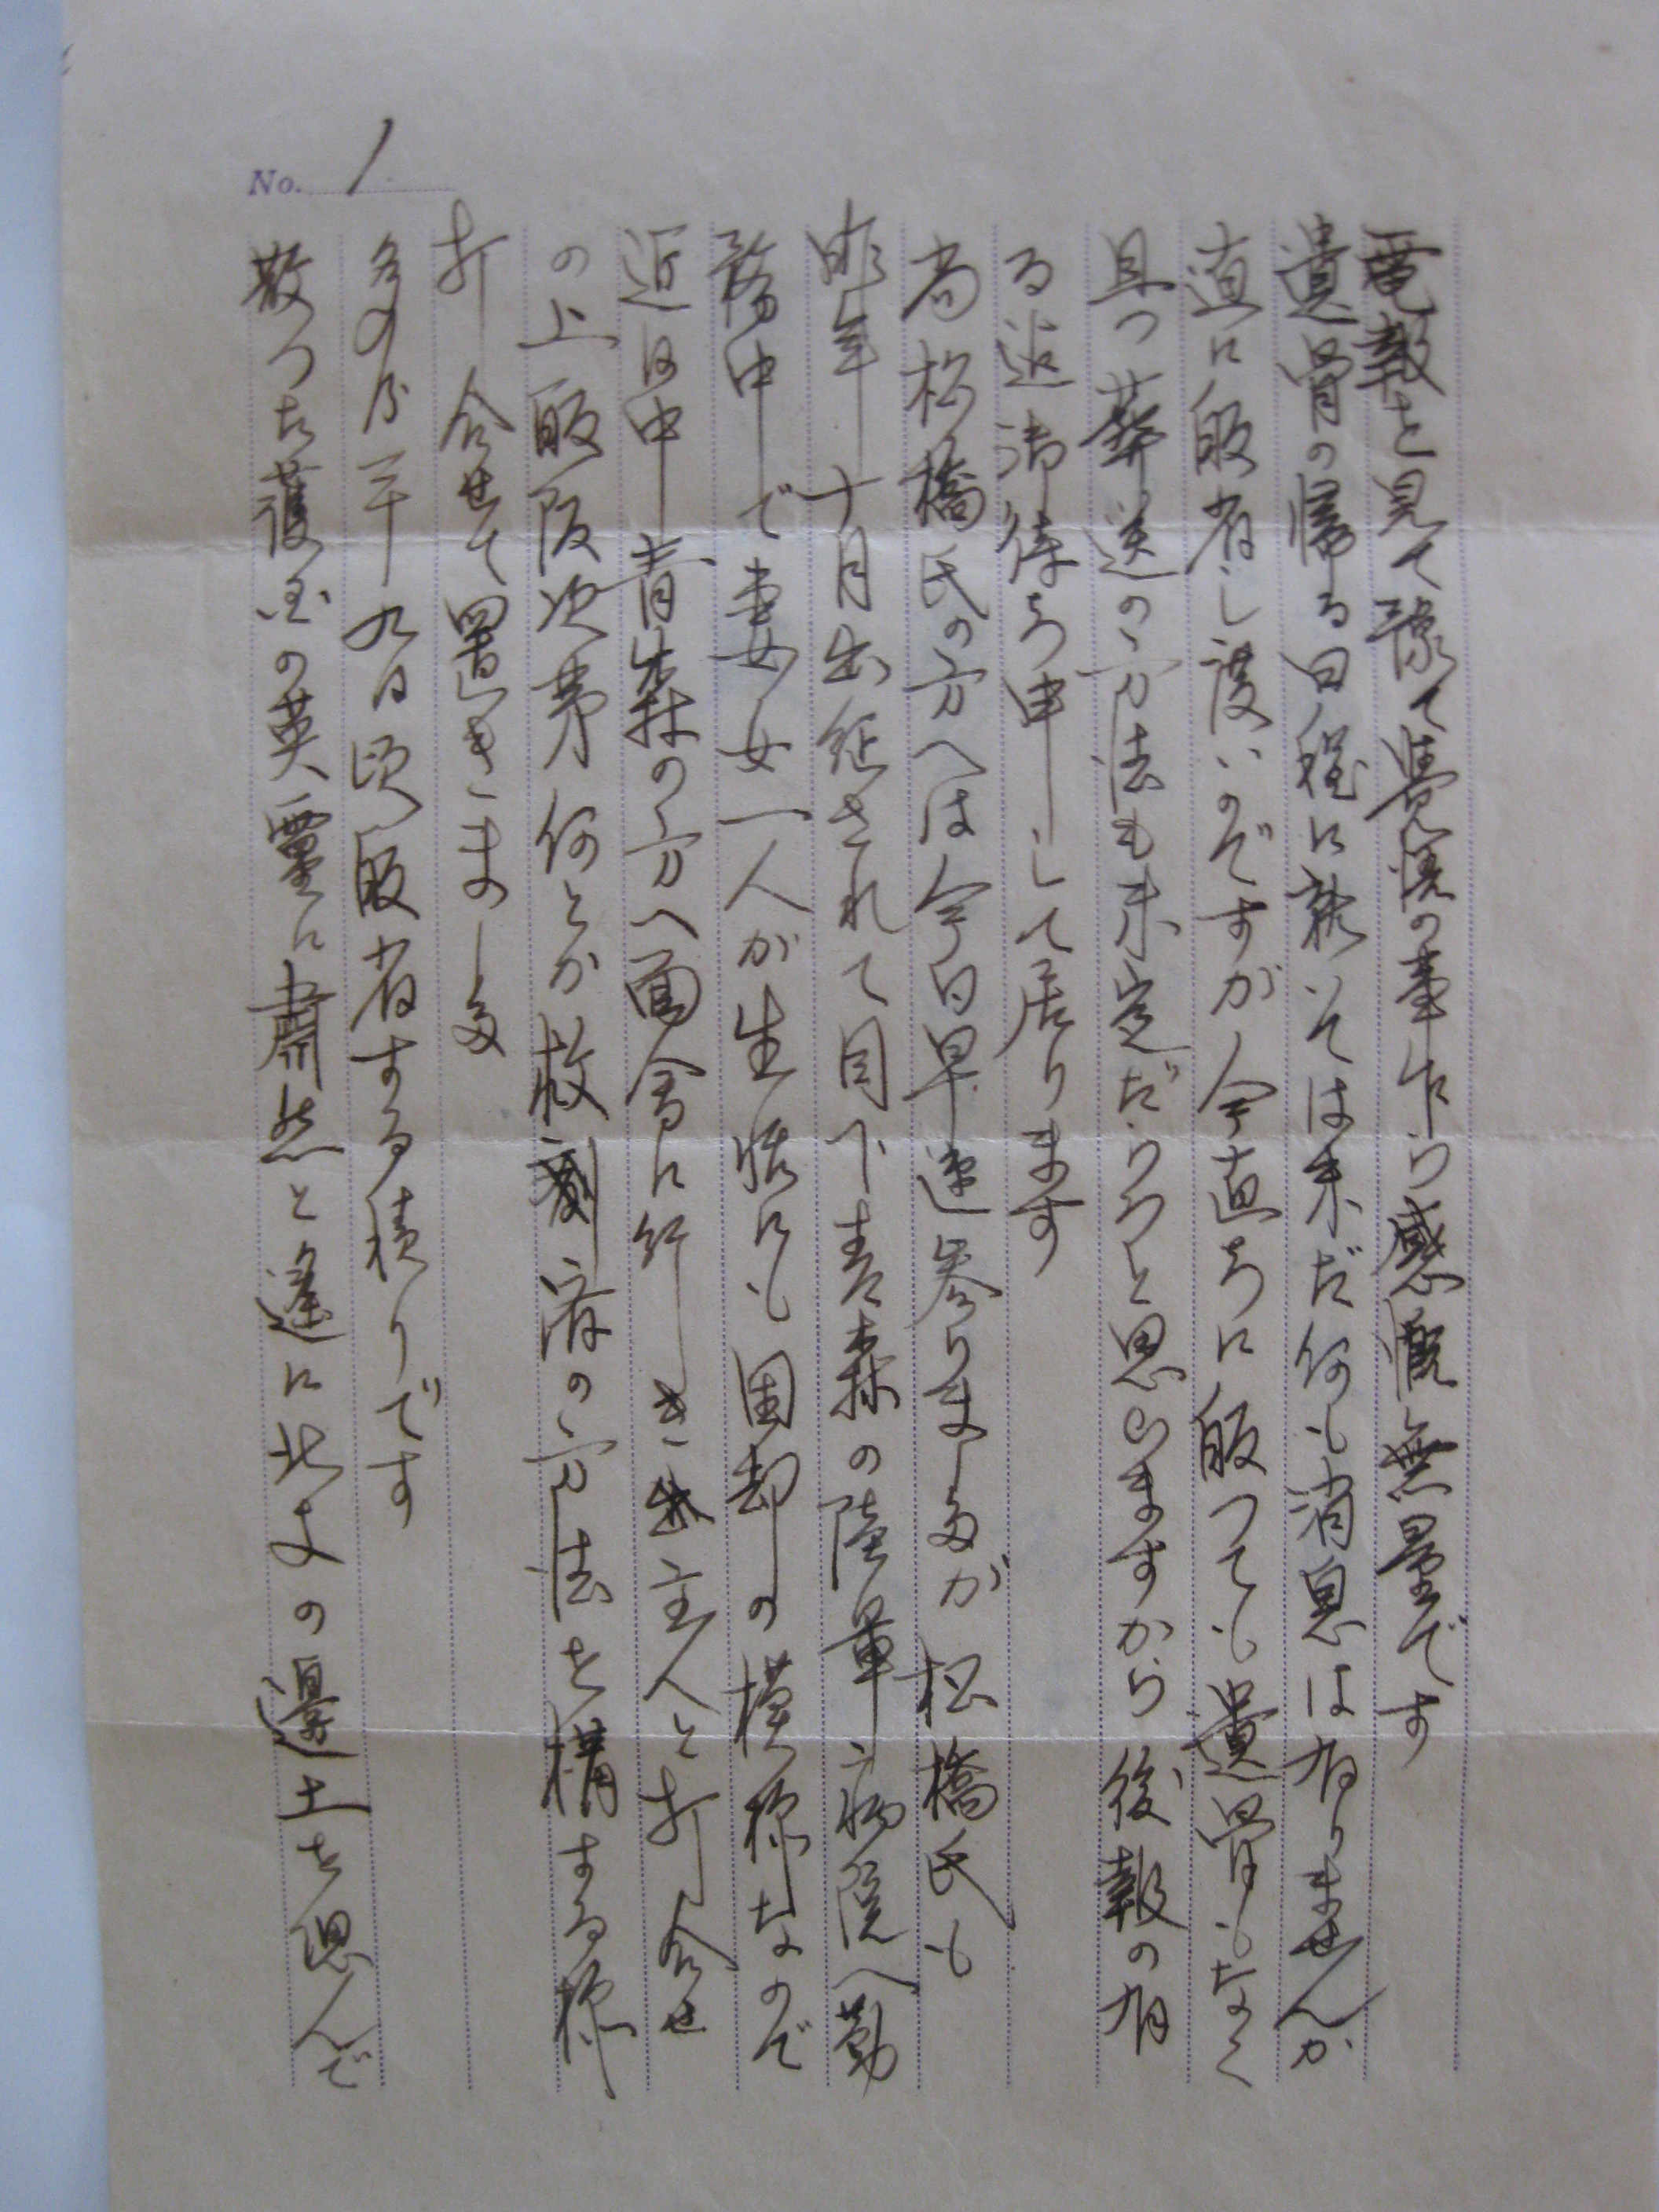 No. 1
電報を見て豫て覚悟の事乍ら感慨無量です
遺骨の帰る日程に就いては未だ何も消息は有りませんか
直に皈省し度いのですが今直ちに皈つても遺骨もなく
且つ葬送の方法も未定だらうと思いますから後報の有
る迄御待ち申して居ります
尚松橋氏の方へは今日早速参りましたが松橋氏も
昨年十月出征されて目下青森の陸軍病院へ勤
務中で妻女一人が生活にも困却の模様なので
近日中青森の方へ面会に行き 主人と打合せ
の上皈阪次第何とか救 済の方法を構する様
打合せて置きました
多分 九日頃皈省する積りです
散つた護国の英霊に粛然と遙に北 の邊土を偲んで